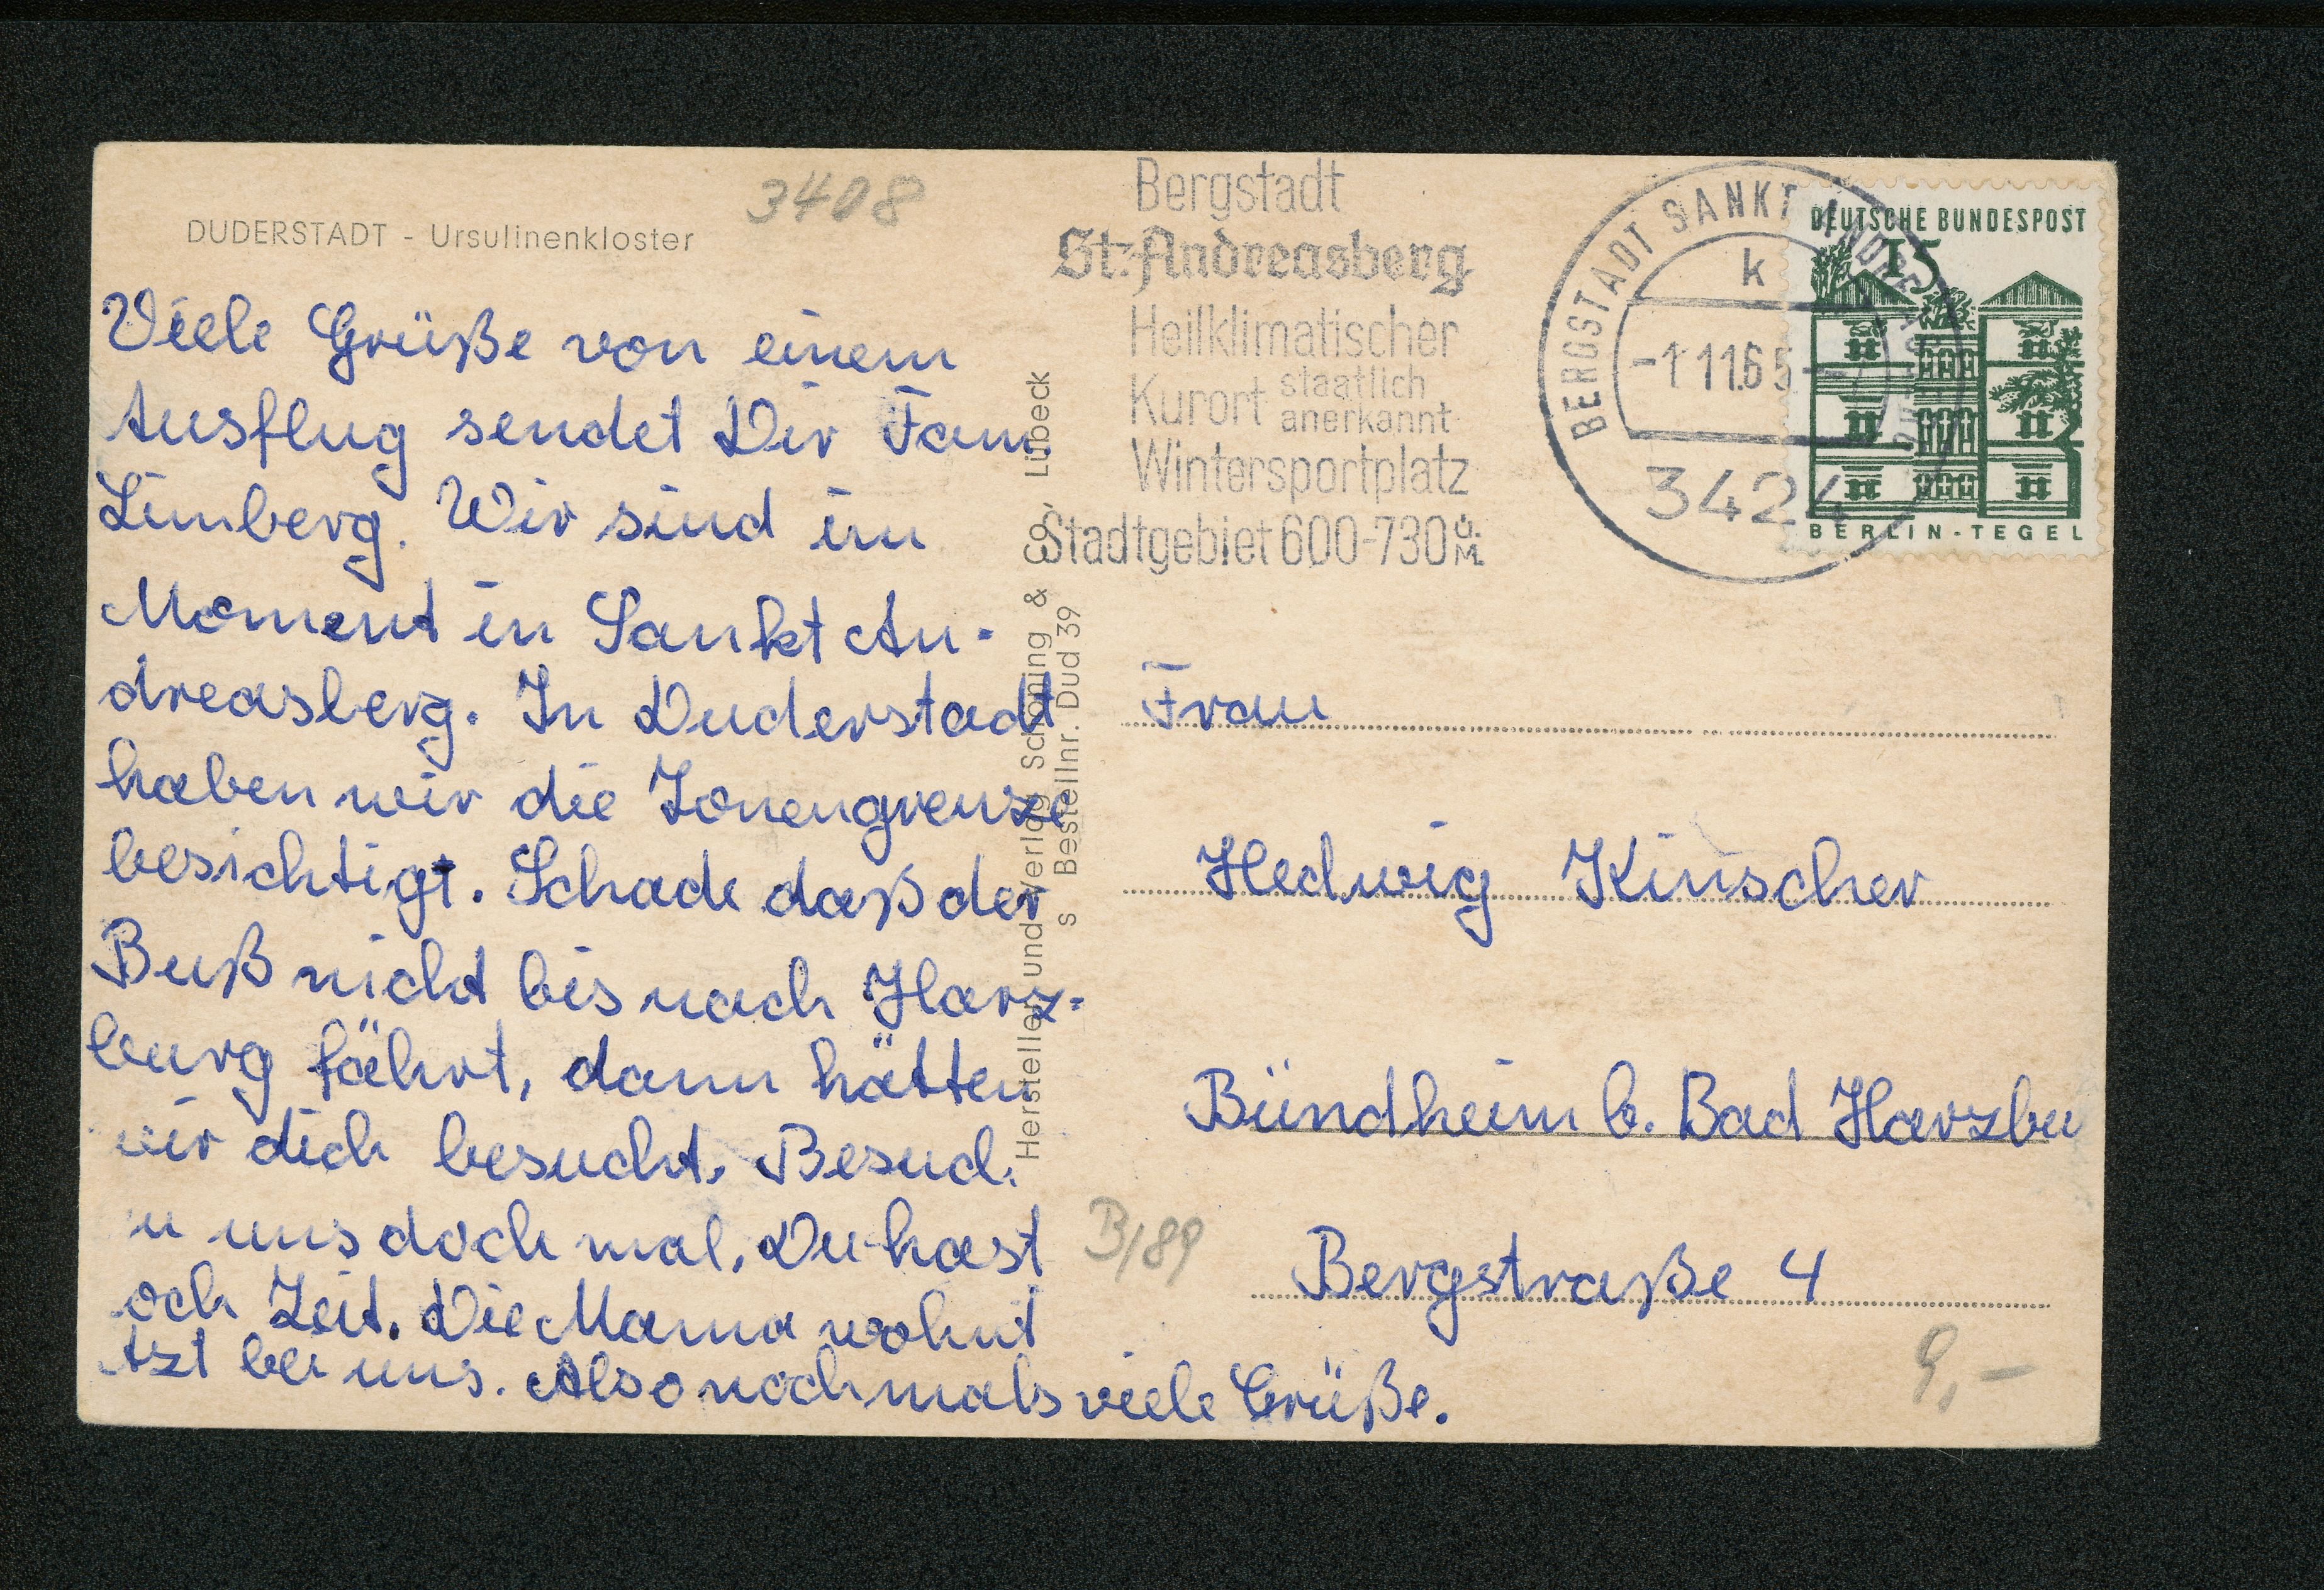 DUDERSTADT - Ursulinenkloster
3408
Viele Grüße von einem
Ausflug sendet Dir Fam
Limberg. Wir sind im
Moment in Sankt An-
dreasberg. In Duderstadt
haben wir die Zonengrenze
besichtigt. Schade daß der
Buß nicht bis nach Harz-
burg fährt, dann hätten
wir dich besucht. Besuch
u uns doch mal. Du hast
och Zeit. Die Mama wohnt
tzt bei uns. Also nochmals viele Grüße.
Hersteller und Verlag Schöning & Co., Lübeck
s Bestellnr. Dud 39
Bergstadt
St. Andreasberg
Heilklimatischer
Kurort staatlich anerkannt
Wintersportplatz
Stadtgebiet 600-730 ü. M.
BERGSTADT SANKT ANDREASBERG
k
-1.11.65-
3424
DEUTSCHE BUNDESPOST
15
BERLIN-TEGEL
Frau
Hedwig Kinscher
Bündheim b. Bad Harzbu
Bergstraße 4
B/89
9,-